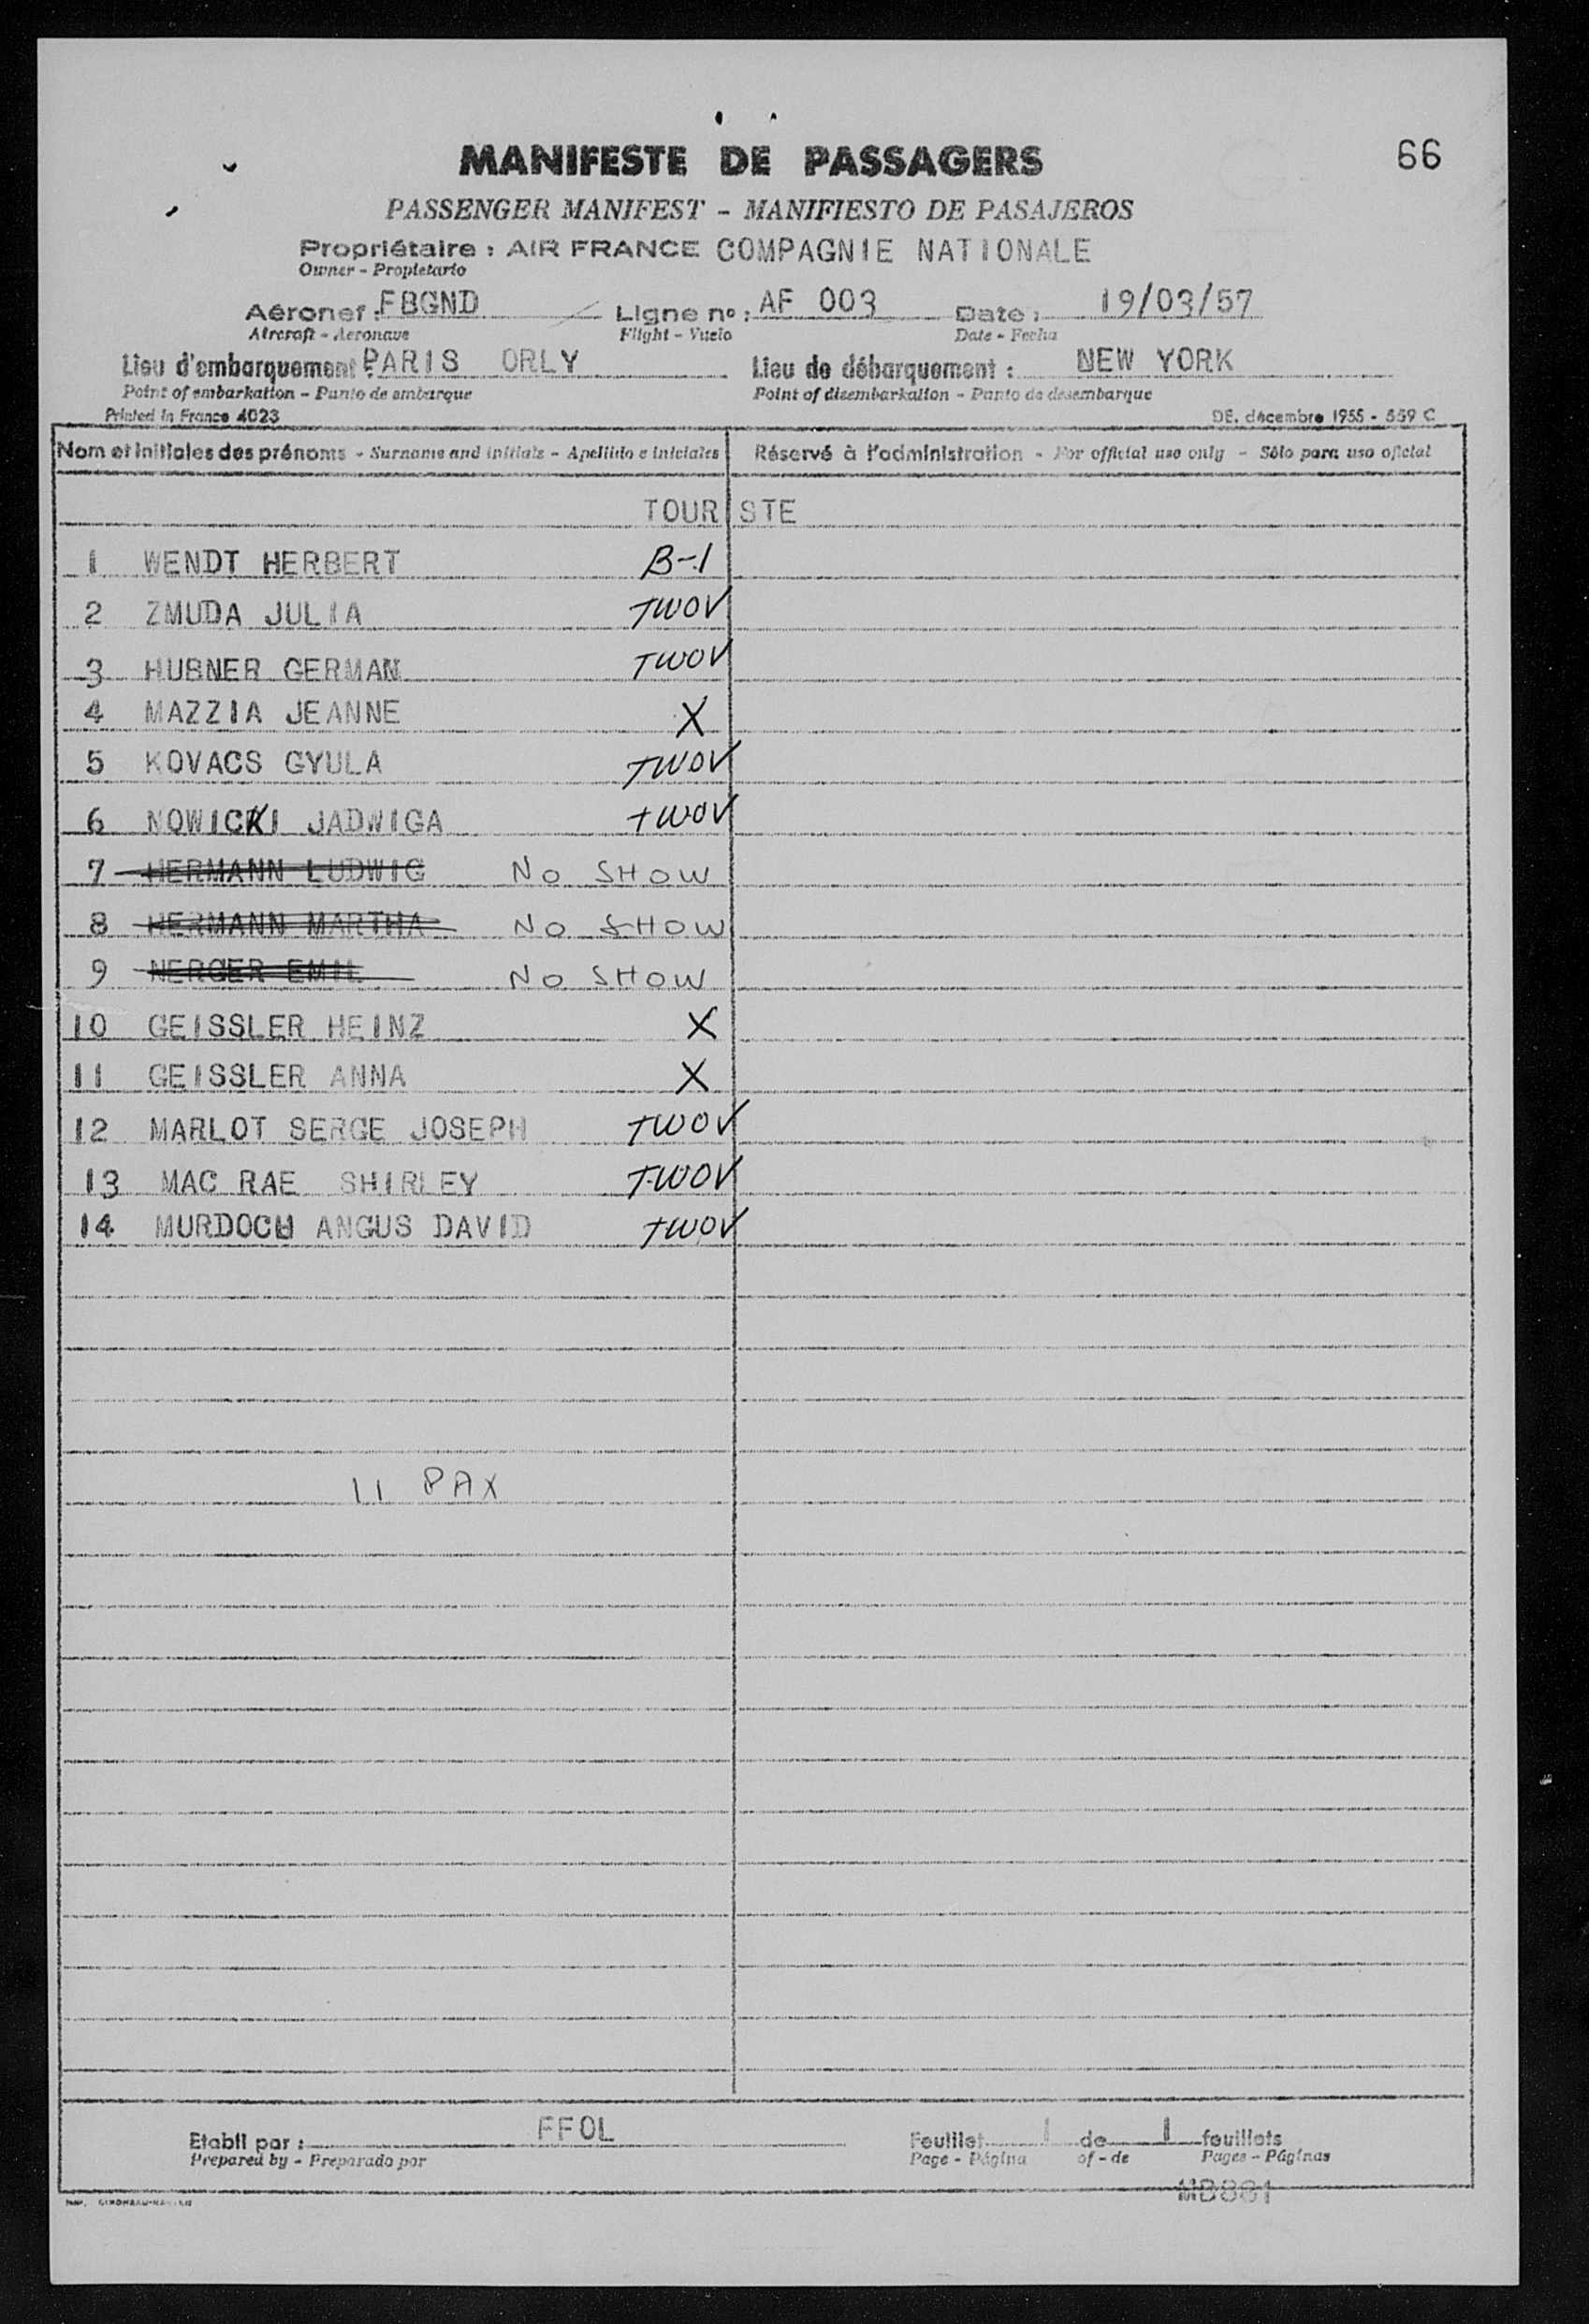 66
MANIFESTE DE PASSAGERS
PASSENGER MANIFEST - MANIFIESTO DE PASAJEROS
Propriétaire : AIR FRANCE COMPAGNIE NATIONALE
Owner - Propietario
Aéronef : FBGND Ligne nº : AF 003 Date : 19/03/57
Aircraft - Aeronave Flight - Vuelo Date - Fecha
Lieu d'embarquement : PARIS ORLY Lieu de débarquement : NEW YORK
Point of embarkation - Punto de embarque Point of disembarkation - Punto de desembarque
Printed in France 4023 DE. décembre 1955 - 559 C
Nom et initiales des prénoms - Surname and initials - Apellido e iniciales Réservé à l'administration - For official use only - Sólo para uso oficial
TOURISTE
1 WENDT HERBERT B-1
2 ZMUDA JULIA TWOV
3 HUBNER GERMAN TWOV
4 MAZZIA JEANNE X
5 KOVACS GYULA TWOV
6 NOWICKI JADWIGA TWOV
7 HERMANN LUDWIG NO SHOW
8 HERMANN MARTHA NO SHOW
9 NERGER EMIL NO SHOW
10 GEISSLER HEINZ X
11 GEISSLER ANNA X
12 MARLOT SERGE JOSEPH TWOV
13 MAC RAE SHIRLEY TWOV
14 MURDOCH ANGUS DAVID TWOV
11 PAX
Etabli par : FFOL Feuillet 1 de 1 feuillets
Prepared by - Preparado por Page - Página of - de Pages - Páginas
MB881